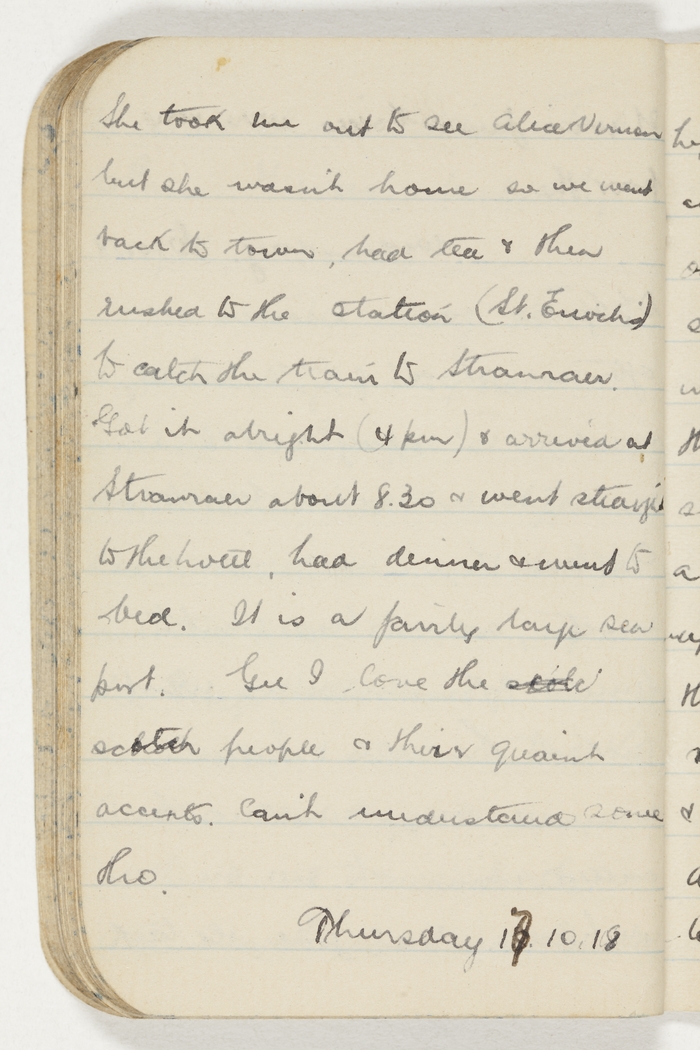 She took me out to see Alice Vernon
but she wasn't home so we went
back to town, had tea & then
rushed to the station (St. Enochs)
to catch the train to Stranraer.
Got it alright (4 pm) & arrived at
Stranraer about 8.30 & went straight
to the hotel, had dinner & went to
bed. It is a fairly large sea
port. Gee I love the
scotch people & their quaint
accents. Can't understand some
tho.
Thursday 17.10.18